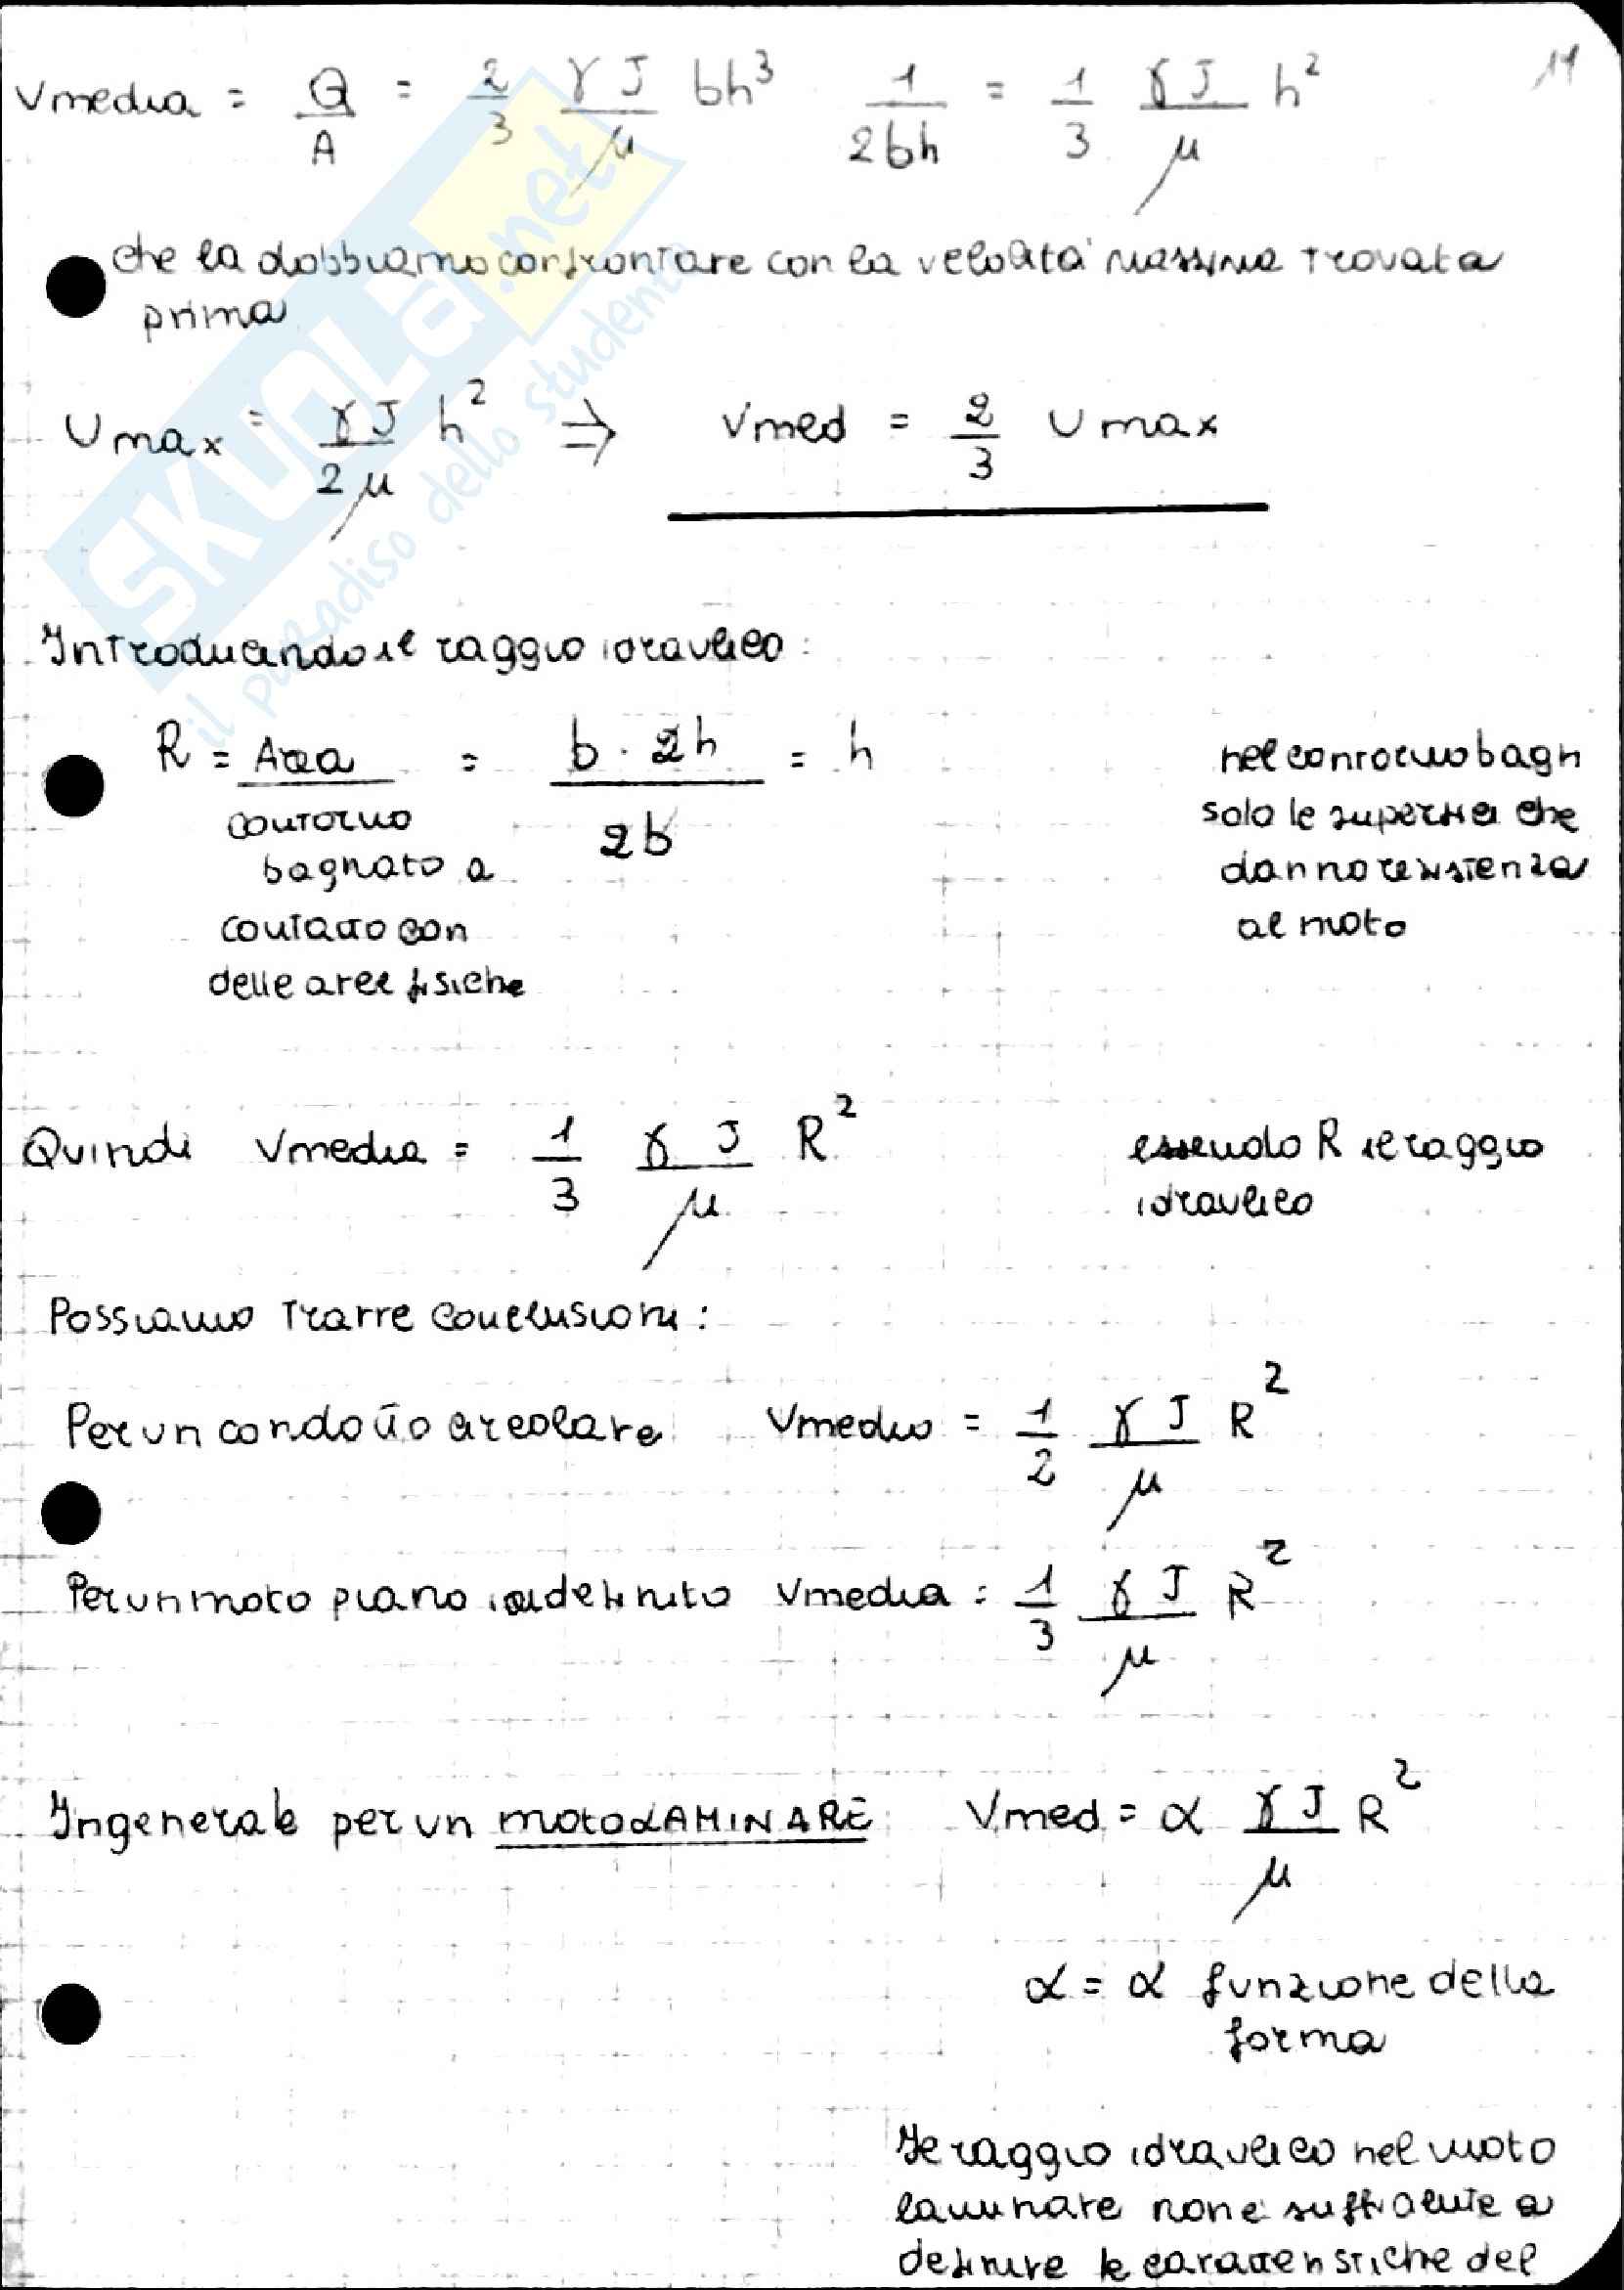 Vmedia = Q/A = 2/3 γJ/μ bh³ 1/2bh = 1/3 γJ/μ h² 11
che la dobbiamo confrontare con la velocità massima trovata
prima
Umax = γJ/2μ h² ⇒ Vmed = 2/3 Umax
Introducendo il raggio idraulico:
R = Area / contorno bagnato a contatto con delle aree fisiche = b · 2h / 2b = h
nel contorno bagn
solo le superfici che
danno resistenza
al moto
Quindi Vmedia = 1/3 γJ/μ R² essendo R il raggio
idraulico
Possiamo trarre conclusioni:
Per un condotto circolare Vmedia = 1/2 γJ/μ R²
Per un moto piano indefinito Vmedia = 1/3 γJ/μ R²
In generale per un moto LAMINARE Vmed = α γJ/μ R²
α = α funzione della
forma
Il raggio idraulico nel moto
laminare non è sufficiente a
definire le caratteristiche del
SKUOLA.net
il paradiso dello studente